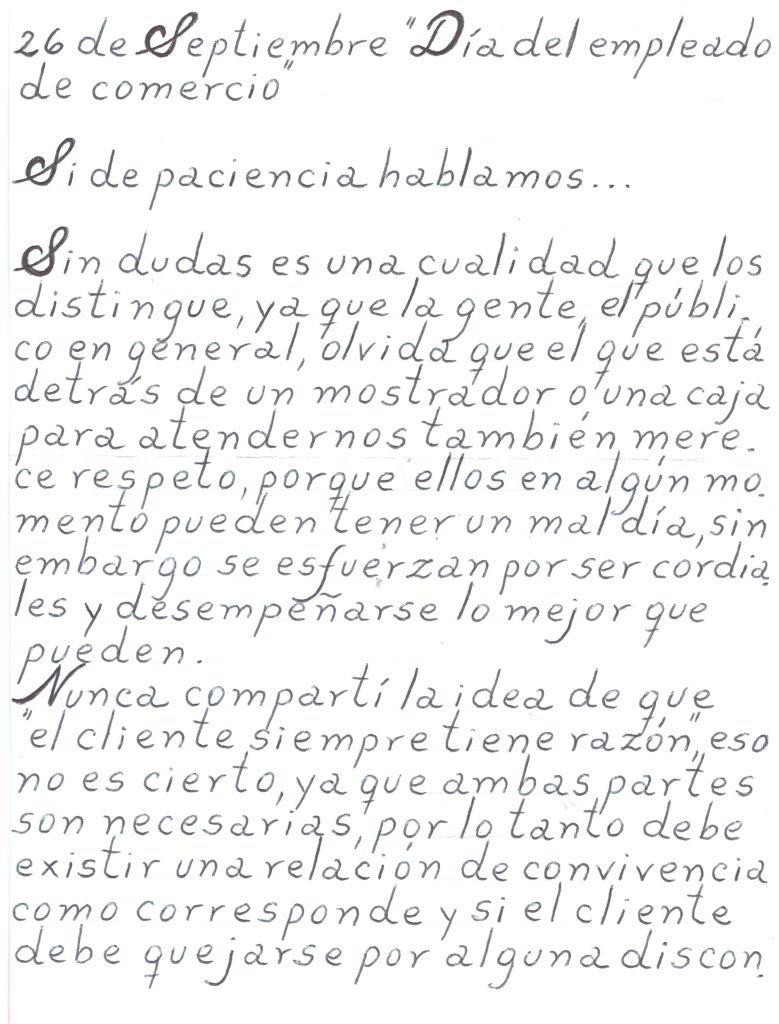 26 de Septiembre "Día del empleado
de comercio"
Si de paciencia hablamos...
Sin dudas es una cualidad que los
distingue, ya que la gente, el públi-
co en general, olvida que el que está
detrás de un mostrador o una caja
para atendernos también mere-
ce respeto, porque ellos en algún mo-
mento pueden tener un mal día, sin
embargo se esfuerzan por ser cordia-
les y desempeñarse lo mejor que
pueden.
Nunca compartí la idea de que
"el cliente siempre tiene razón", eso
no es cierto, ya que ambas partes
son necesarias, por lo tanto debe
existir una relación de convivencia
como corresponde y si el cliente
debe quejarse por alguna discon-